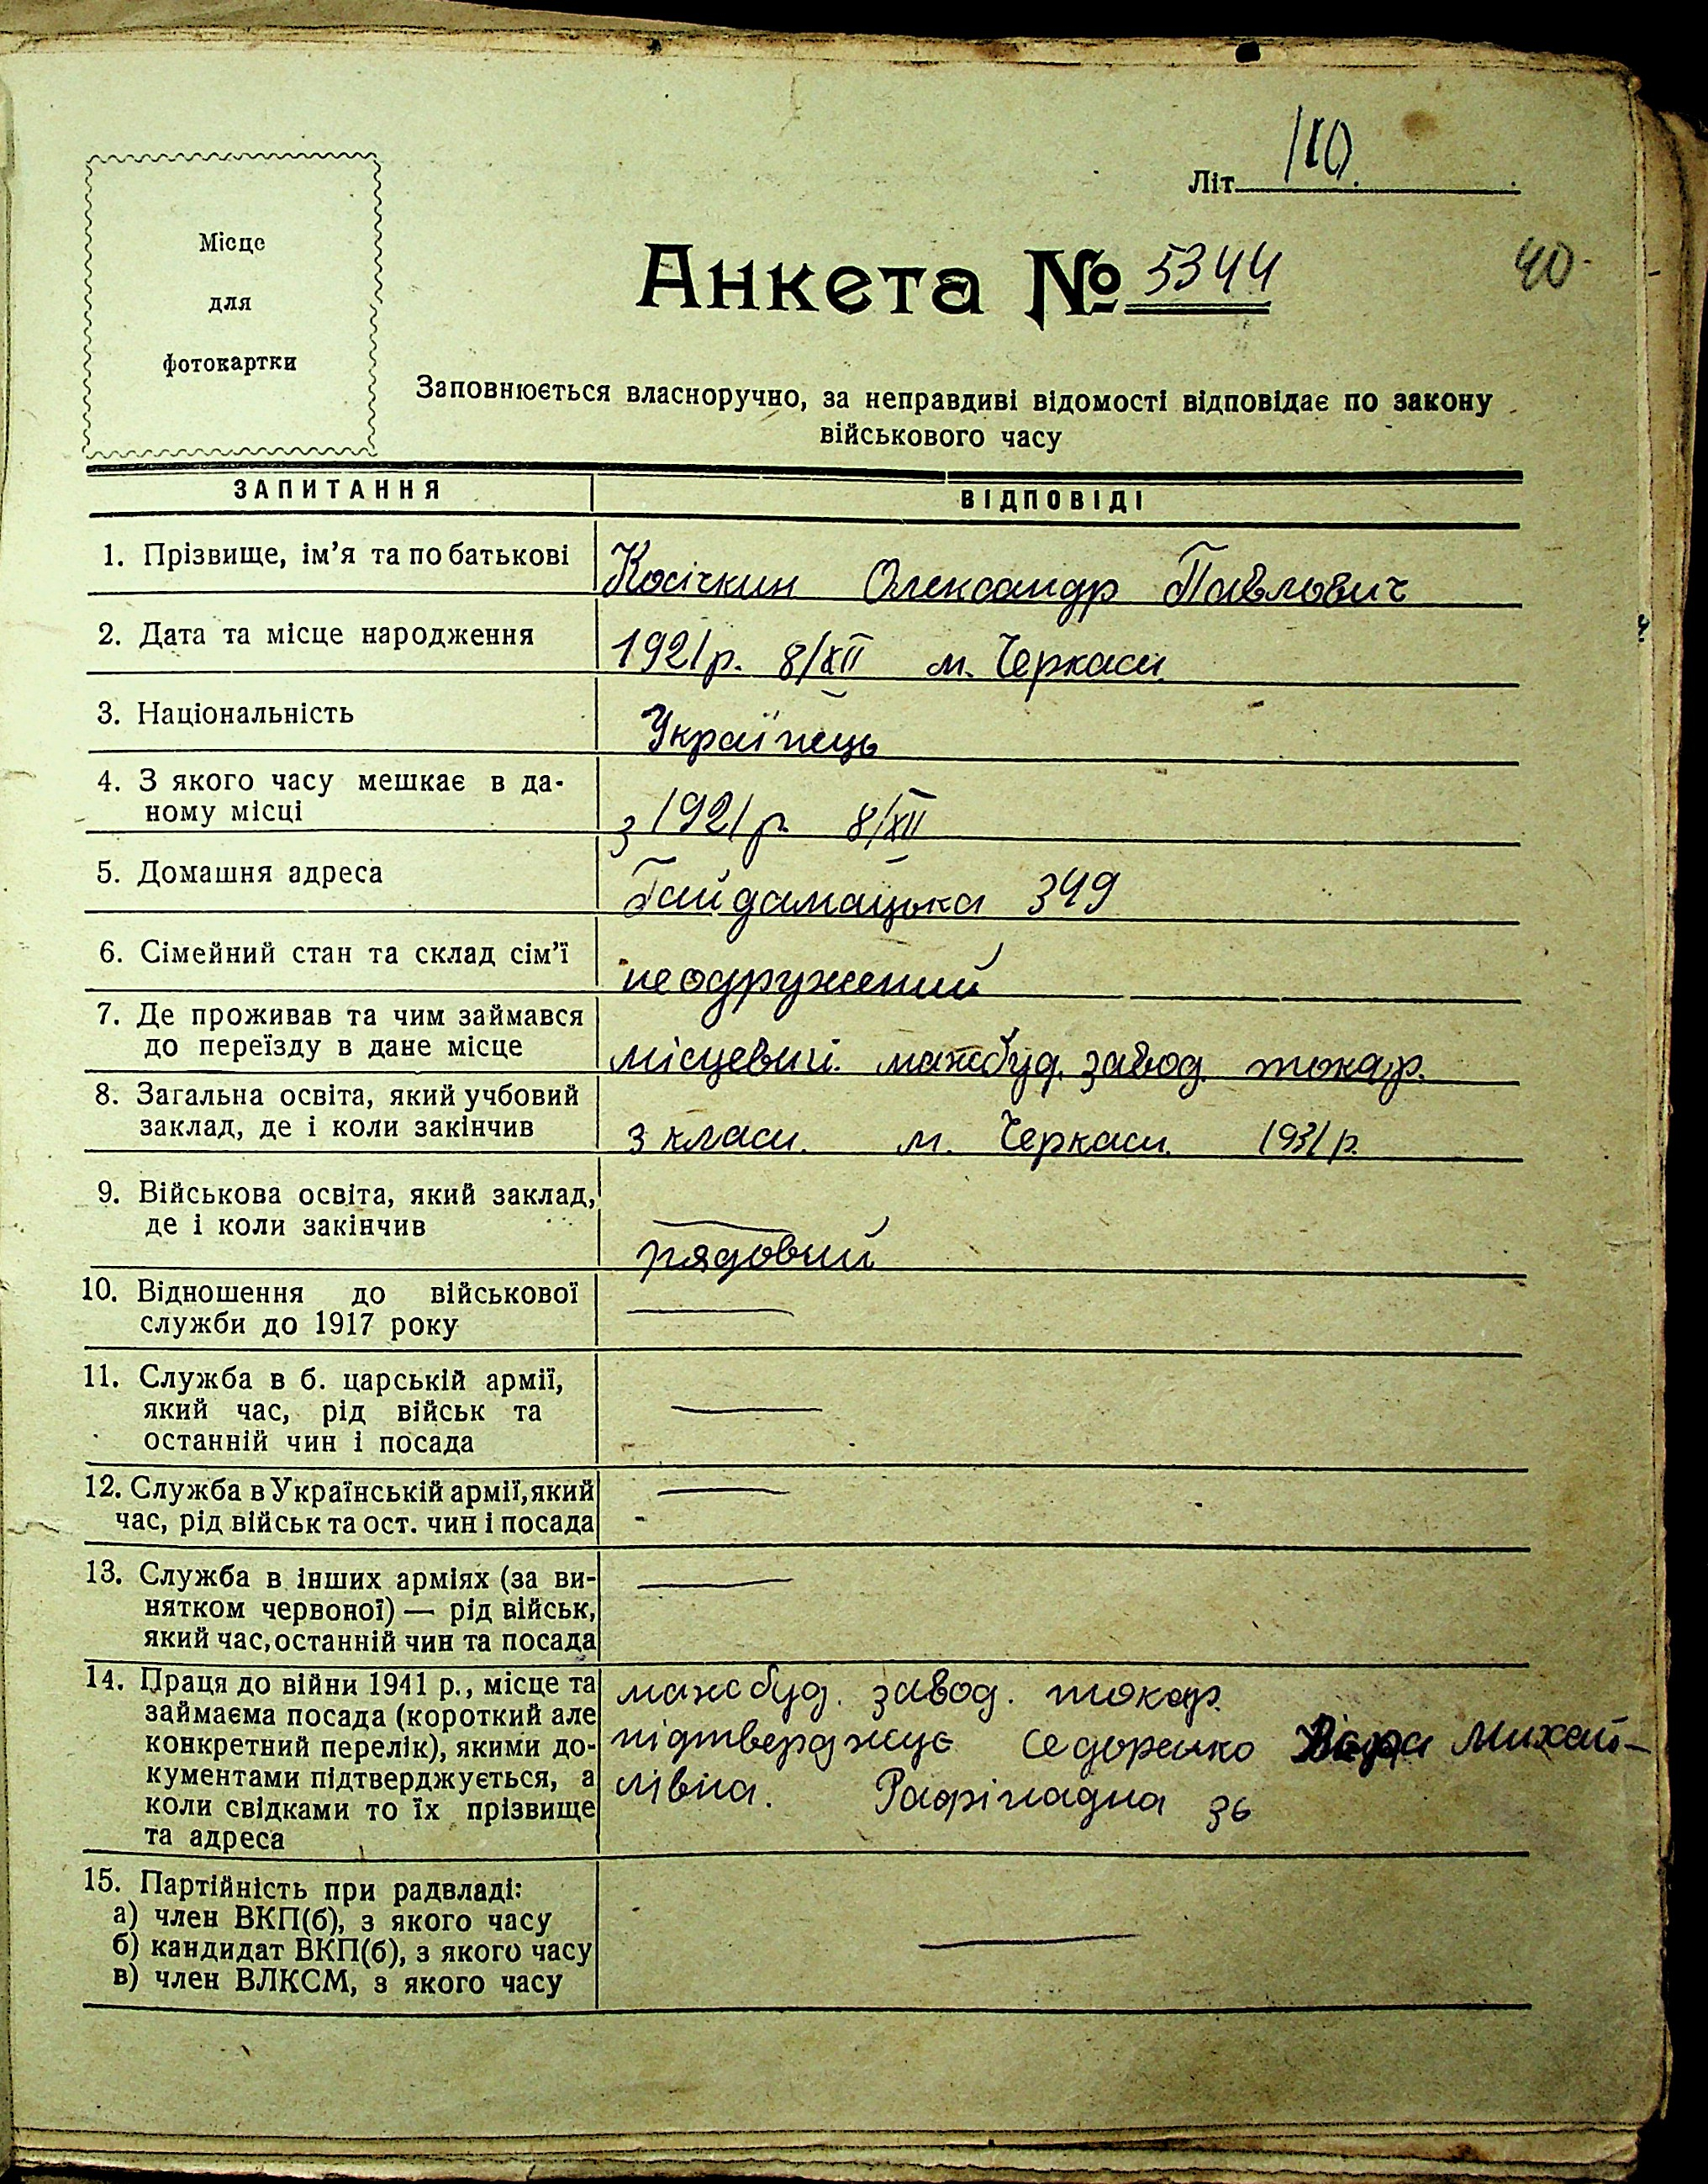 Літ. 110.
Місце
для
фотокартки
Анкета № 5344
40
Заповнюється власноручно, за неправдиві відомості відповідає по закону
військового часу
ЗАПИТАННЯ
ВІДПОВІДІ
1. Прізвище, ім'я та по батькові
Косічкин Олександр Павлович
2. Дата та місце народження
1921 р. 8/XII м. Черкаси.
3. Національність
Українець
4. З якого часу мешкає в да-
ному місці
з 1921 р. 8/XII
5. Домашня адреса
Гайдамацька 349
6. Сімейний стан та склад сім'ї
неодружений
7. Де проживав та чим займався
до переїзду в дане місце
місцевий. машбуд. завод. токар.
8. Загальна освіта, який учбовий
заклад, де і коли закінчив
3 класи. м. Черкаси. 1931 р.
9. Військова освіта, який заклад,
де і коли закінчив
рядовий
10. Відношення до військової
служби до 1917 року
11. Служба в б. царській армії,
який час, рід військ та
останній чин і посада
12. Служба в Українській армії, який
час, рід військ та ост. чин і посада
13. Служба в інших арміях (за ви-
нятком червоної) — рід військ,
який час, останній чин та посада
14. Праця до війни 1941 р., місце та
займаєма посада (короткий але
конкретний перелік), якими до-
кументами підтверджується, а
коли свідками то їх прізвище
та адреса
машбуд. завод. токар.
підтверджує Седоренко Віра Михай-
лівна. Рафінадна 36
15. Партійність при радвладі:
а) член ВКП(б), з якого часу
б) кандидат ВКП(б), з якого часу
в) член ВЛКСМ, з якого часу